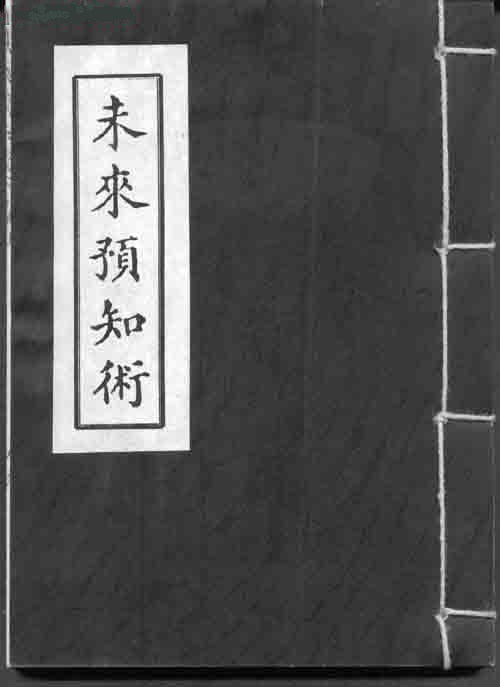 未來預知術